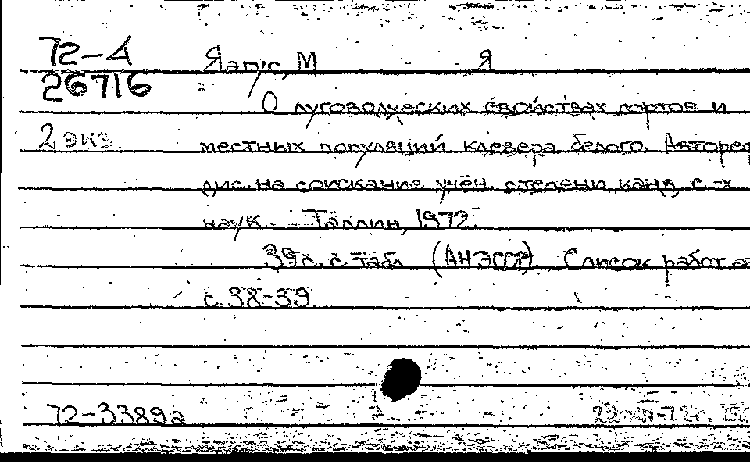 72-А
26716
Яапус, М Я
О луговодческих свойствах сортов и
2 экз местных популяций клевера белого. Автореф
дис. на соискание учен. степени канд с-х
наук. Таллин, 1972.
39 с. с табл (АН ЭССР) Список работ
с. 38-39
72-3389а